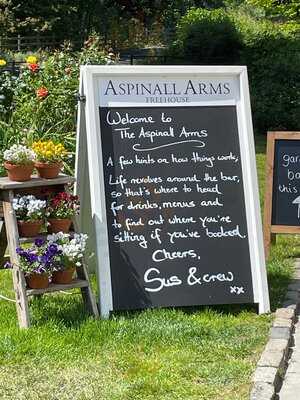 ASPINALL ARMS
FREEHOUSE
Welcome to
The Aspinall Arms
A few hints on how things work,
Life revolves around the bar,
so that's where to head
for drinks, menus and
to find out where you're
sitting if you've booked.
Cheers,
Sus & crew
xx
gar
ba
this